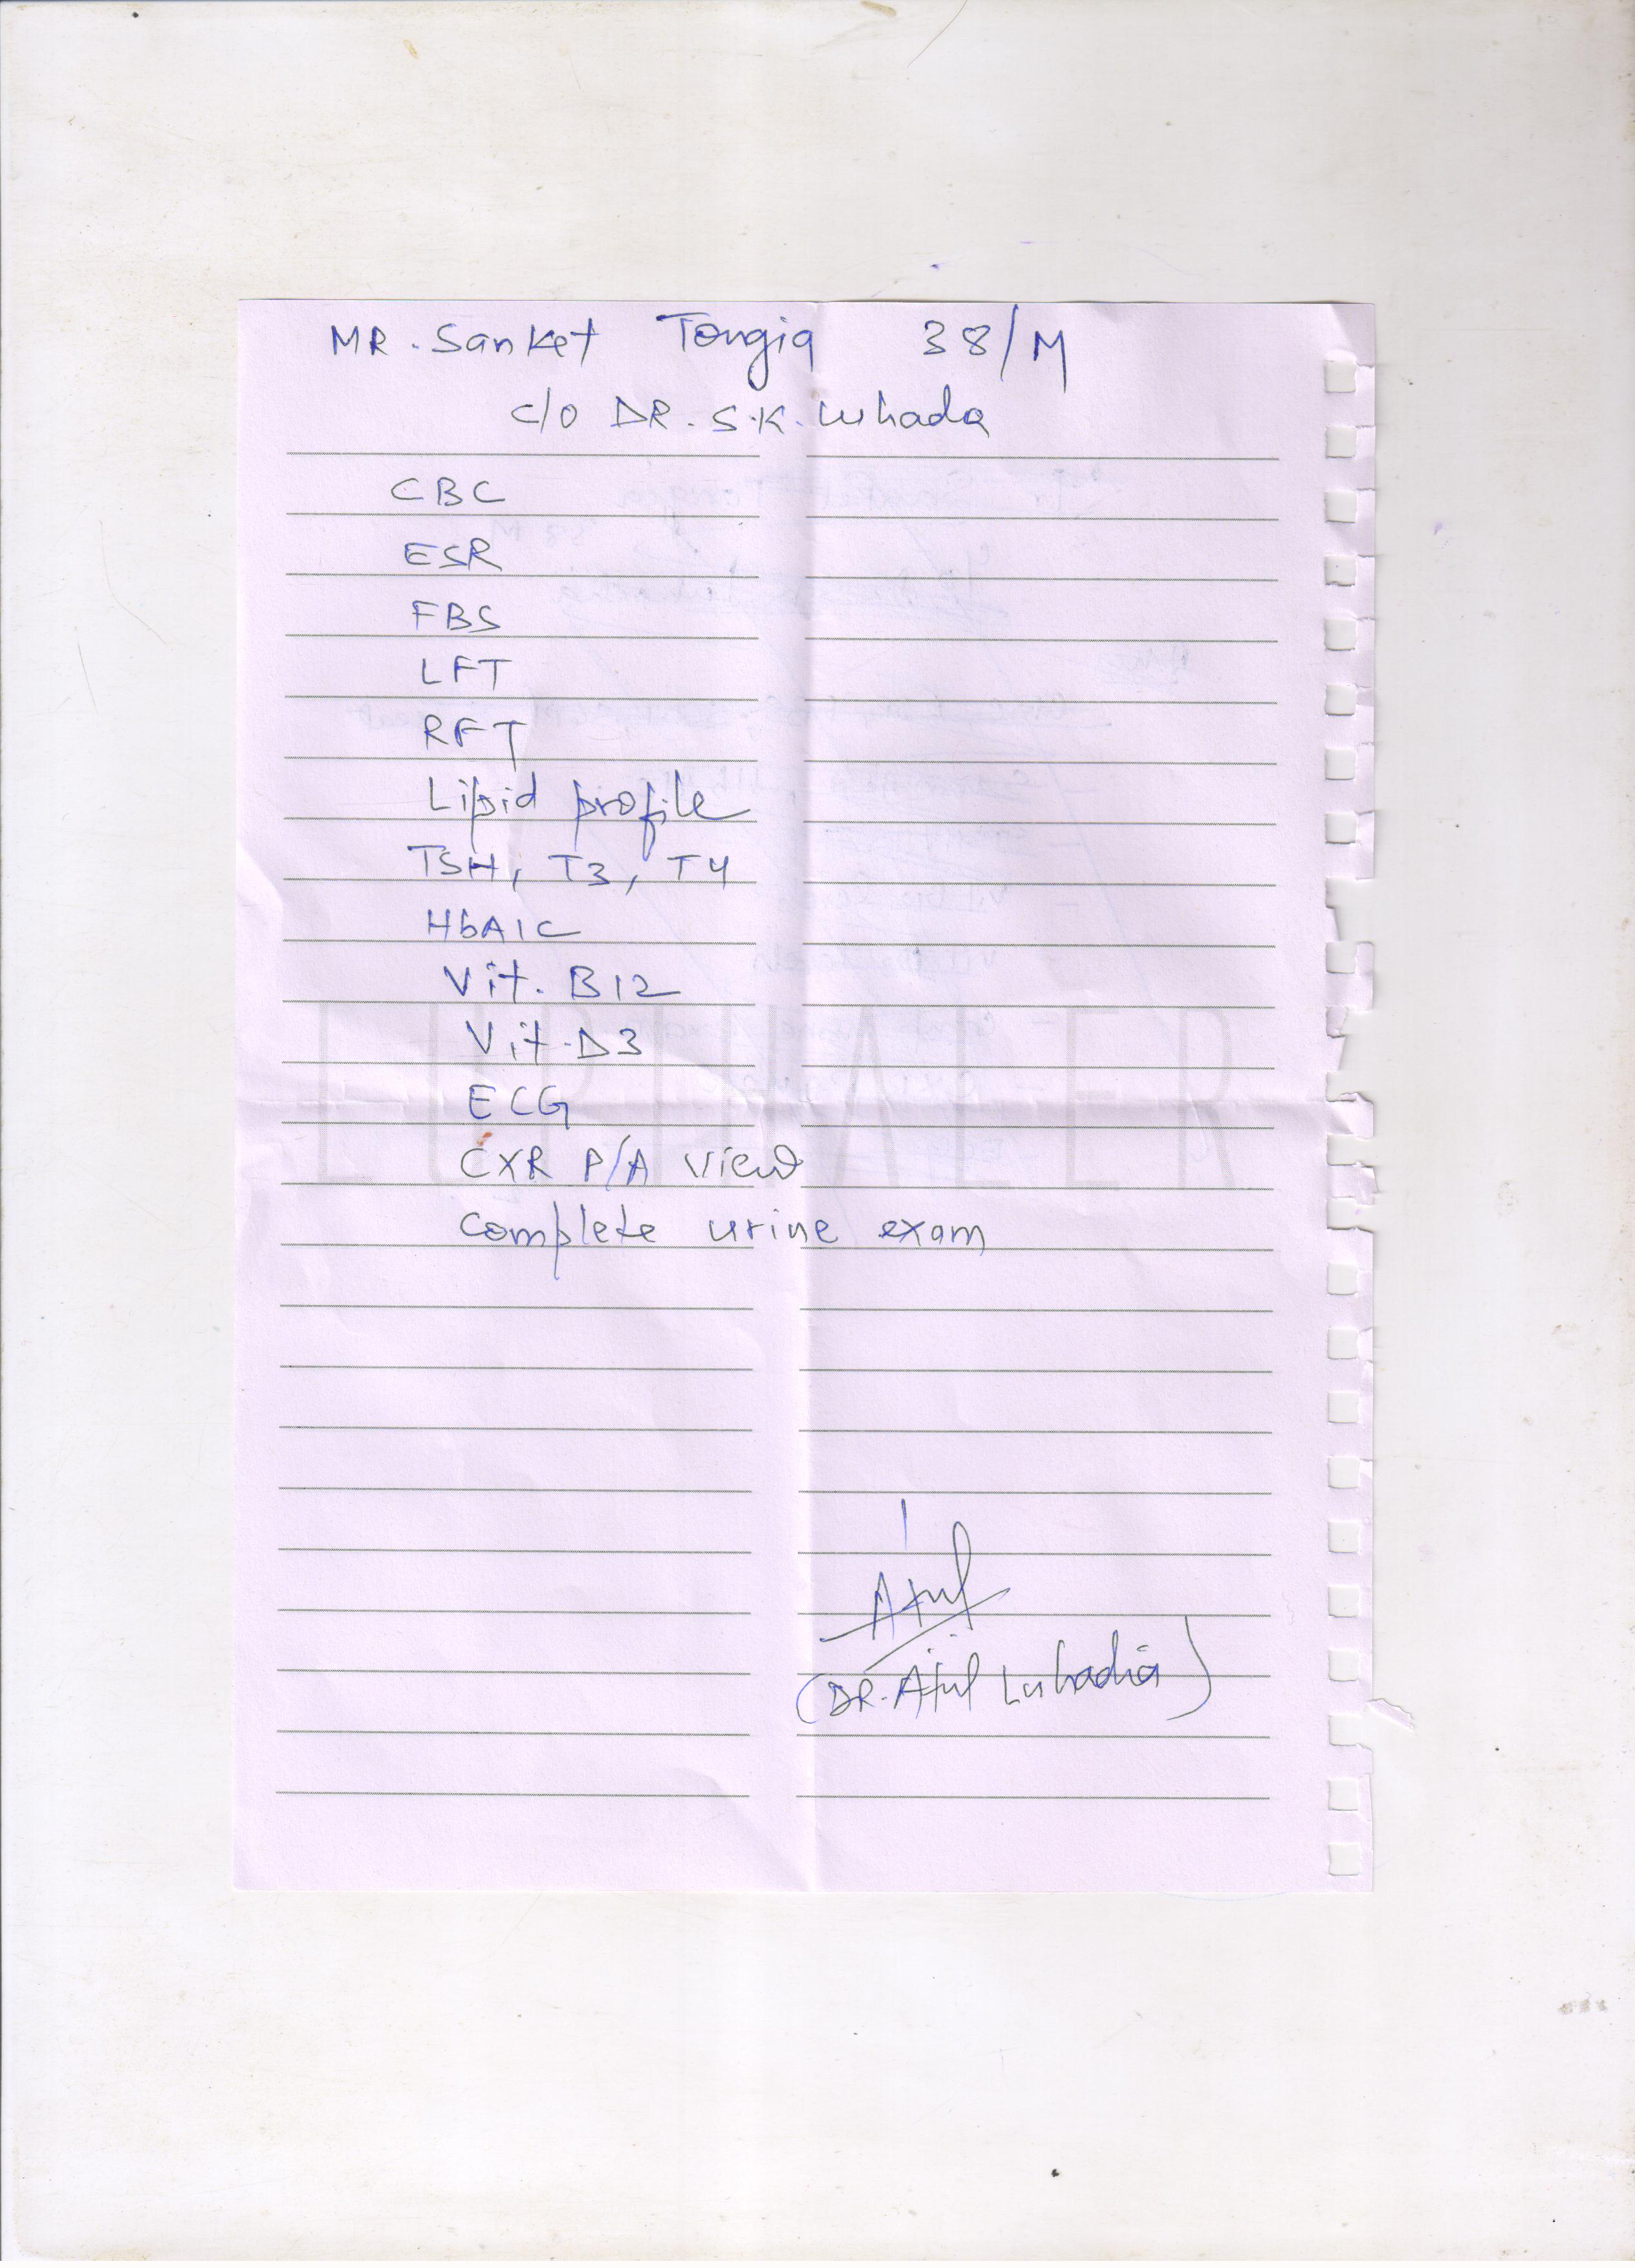 MR. Sanket Tongia 38/M
c/o DR. S.K. Luhada
CBC
ESR
FBS
LFT
RFT
Lipid profile
TSH, T3, T4
HbA1C
Vit. B12
Vit. D3
ECG
CXR P/A view
Complete urine exam
Atul
(DR. Atul Luhadia)